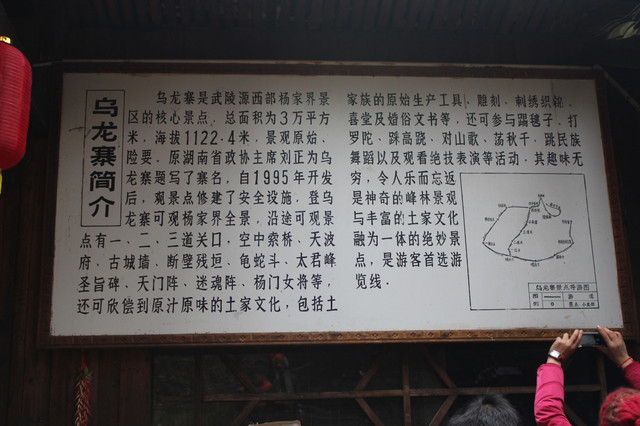 乌龙寨简介
乌龙寨是武陵源西部杨家界景
区的核心景点。总面积为3万平方
米，海拔1122.4米，景观原始、
险要，原湖南省政协主席刘正为乌
龙寨题写了寨名，自1995年开发
后，观景点修建了安全设施，登乌
龙寨可观杨家界全景，沿途可观景
点有一、二、三道关口，空中索桥、天波
府、古城墙、断壁残垣、龟蛇斗、太君峰
圣旨碑、天门阵、迷魂阵、杨门女将等，
还可欣偿到原汁原味的土家文化，包括土
家族的原始生产工具、雕刻、刺绣织锦、
喜堂及婚俗文书等，还可参与踢毽子、打
罗陀、踩高跷、对山歌、荡秋千、跳民族
舞蹈以及观看绝技表演等活动。其趣味无
穷，令人乐而忘返
是神奇的峰林景观
与丰富的土家文化
融为一体的绝妙景
点，是游客首选游
览线．
乌龙寨景点导游图